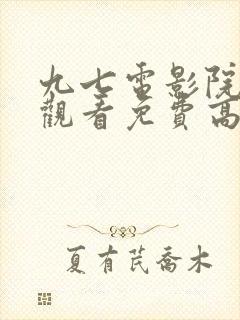 九七電影院
觀看免費高
夏有芪喬木